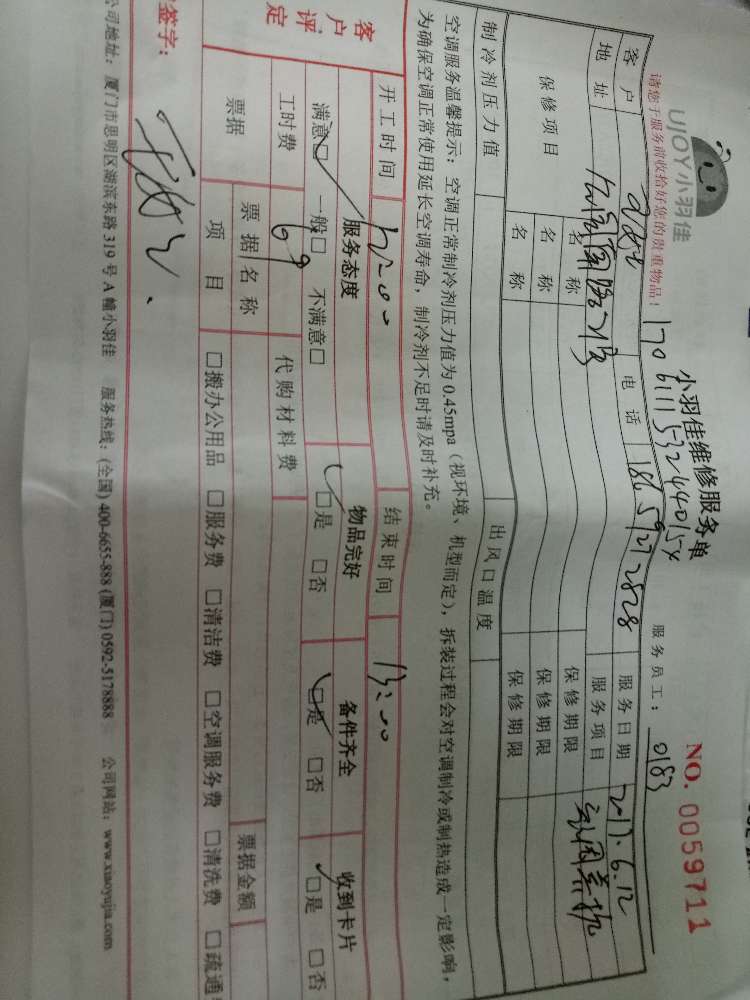 UJOY小羽佳
小羽佳维修服务单
NO. 0059711
请您于服务前收拾好您的贵重物品！
170611153244015X
服务员工： 0183
客户 电话 18659272828 服务日期 2017.6.12
地址 服务项目
保修项目 名称 保修期限
名称 保修期限
名称 保修期限
制冷剂压力值 出风口温度
空调服务温馨提示：空调正常制冷剂压力值为 0.45mpa（视环境、机型而定），拆装过程会对空调制冷或制热造成一定影响，
为确保空调正常使用延长空调寿命，制冷剂不足时请及时补充。
开工时间 结束时间
客户评定 服务态度 物品完好 备件齐全 收到卡片
满意□ 一般□ 不满意□ □是 □否 □是 □否 □是 □否
工时费 69 代购材料费
票据 票据名称 票据金额
项目 □搬办公用品 □服务费 □清洁费 □空调服务费 □清洗费 □疏通
签字：
公司地址：厦门市思明区湖滨东路 319 号 A 幢小羽佳 服务热线：(全国) 400-6655-888 (厦门) 0592-5178888 公司网站：www.xiaoyujia.com